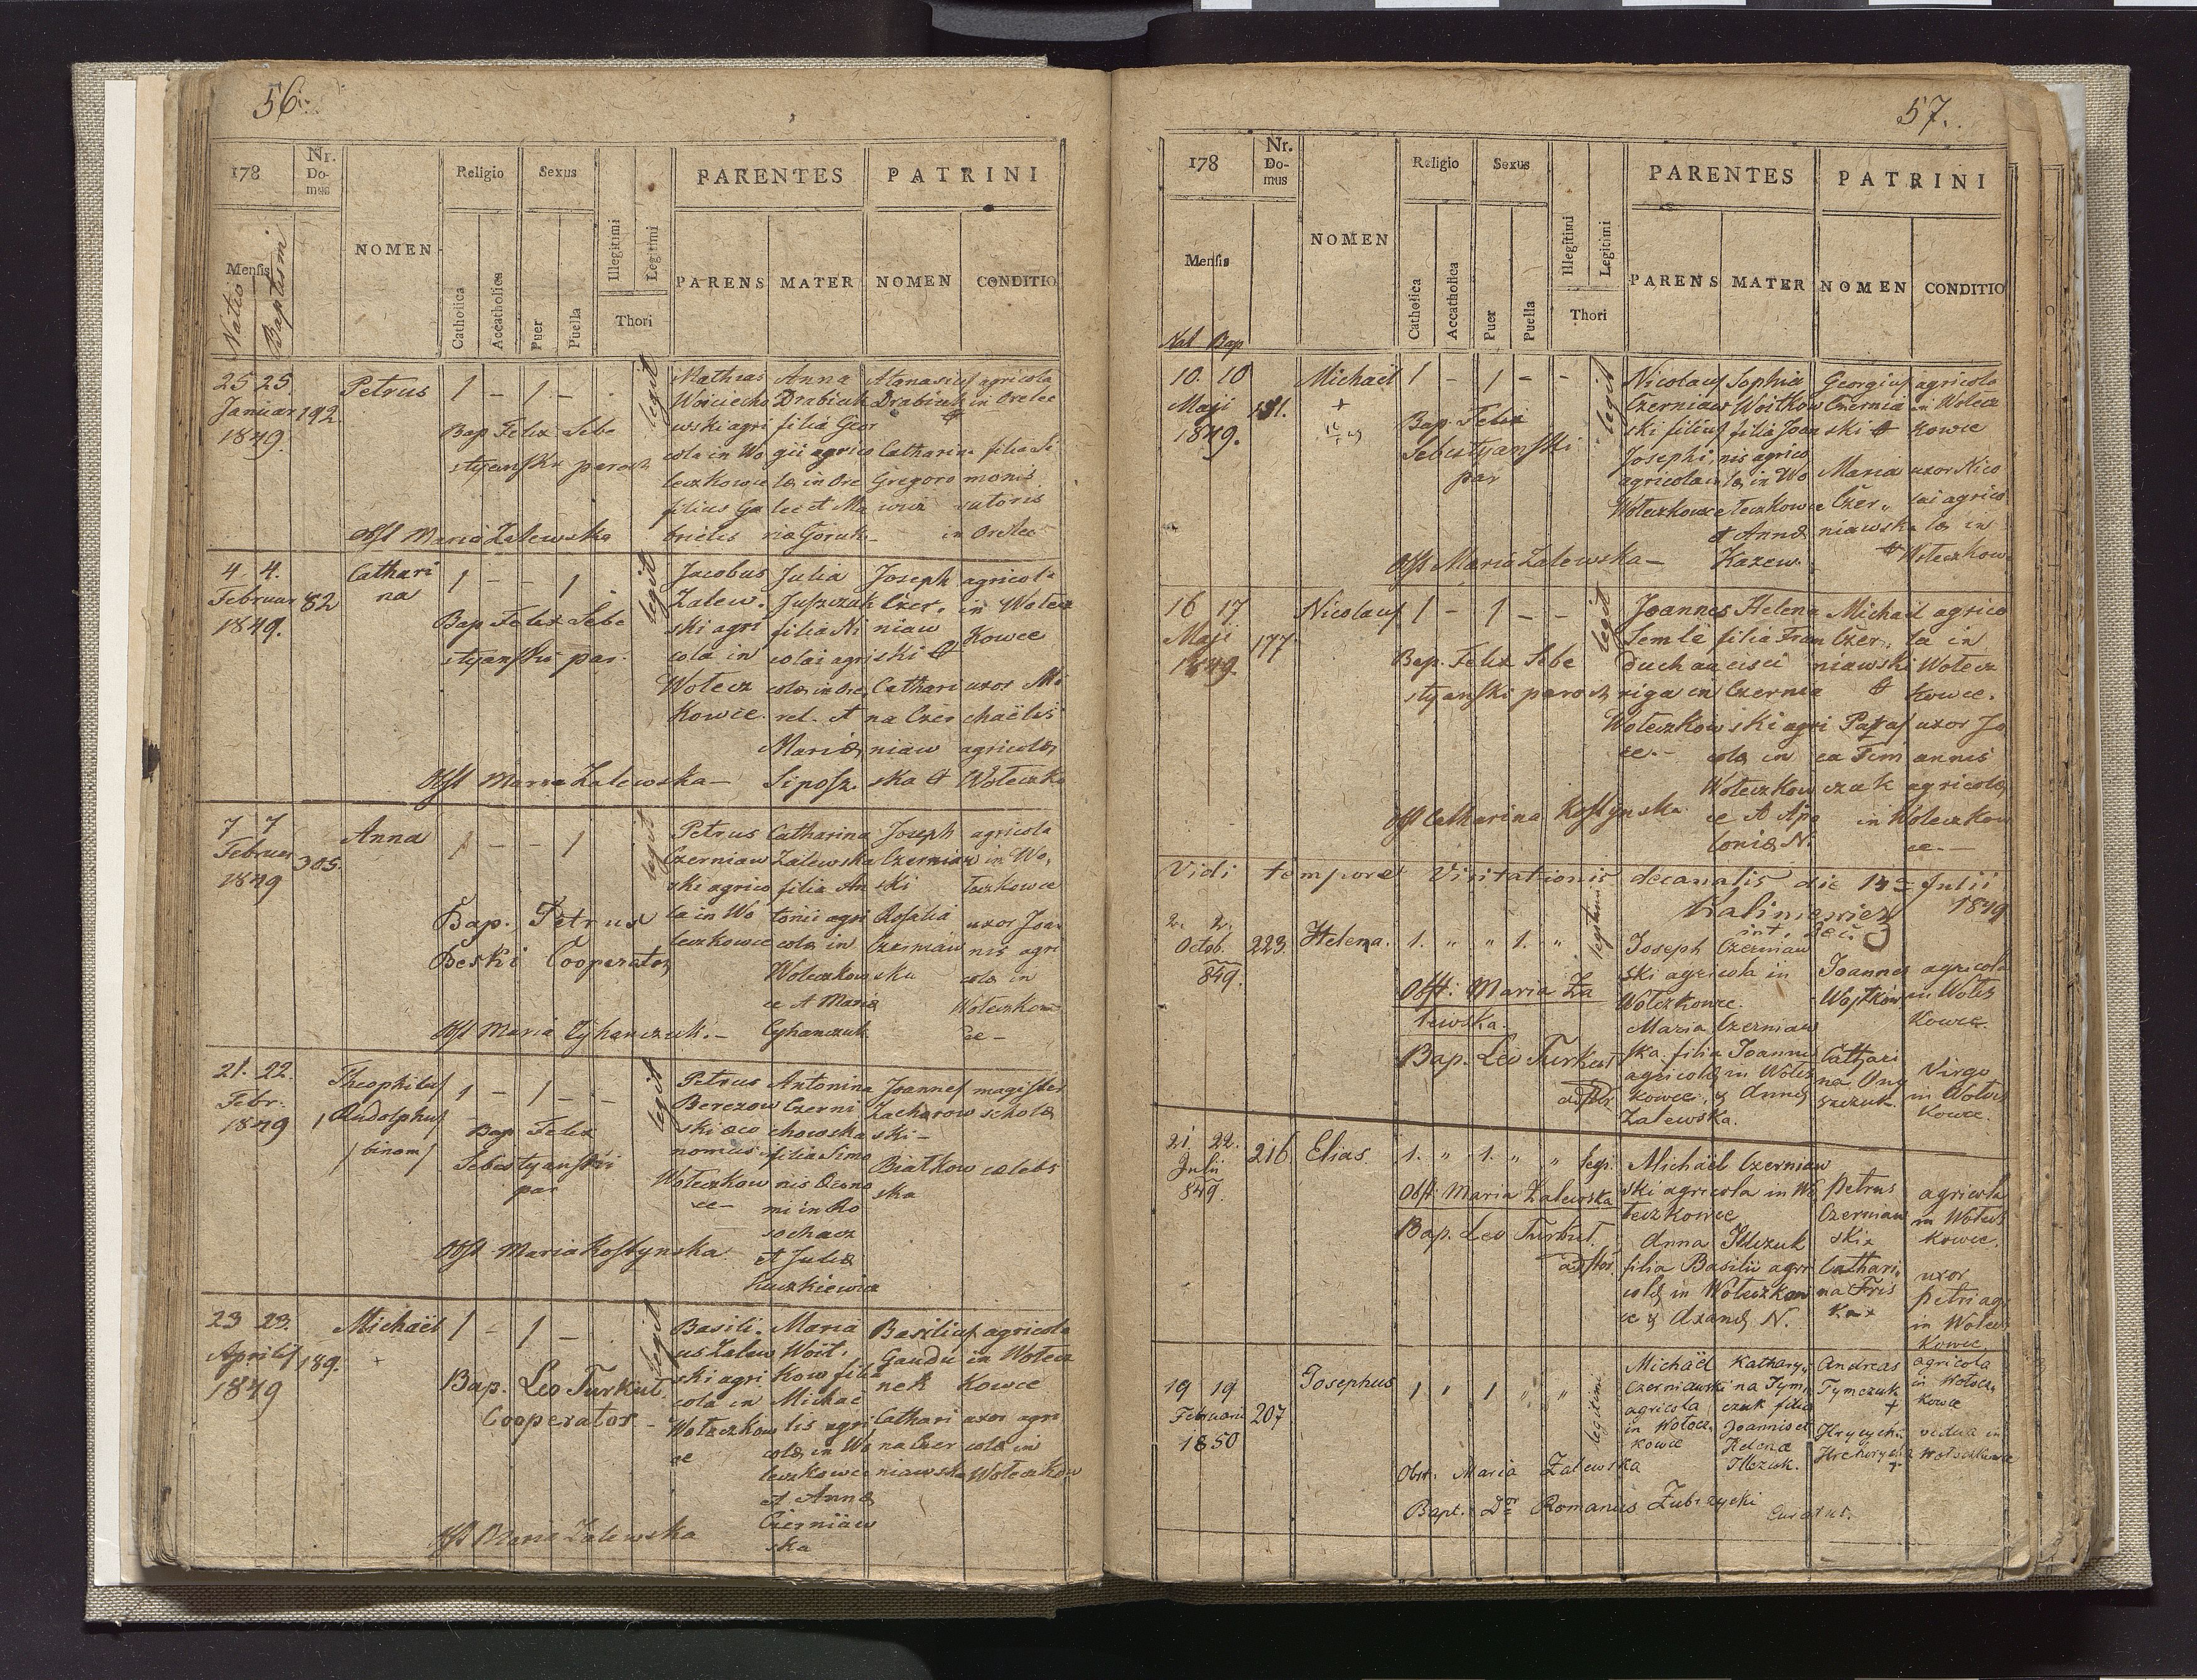 56.
178
Nr. Do- mus
NOMEN
Religio
Sexus
PARENTES
PATRINI
Mensis
Natio
Baptismi
Catholica
Accatholica
Puer
Puella
Illegitimi
Legitimi
Thori
PARENS
MATER
NOMEN
CONDITIO
25 25.
Januar
1849.
192.
Petrus
1 – 1 –
legit
Bap Felix Sebe
styanski paroch
Obst Maria Zalewska
Matheas
Woiciecho
wski agri
cola in Wo
leczkowce
filius Ga
brielis
Anna
Drabiuk
filia Geor
gii agrico
læ in Ore
lec et Ma
ria
Atanasius
Drabiuk
Catharina
Gregoro
wicz
agricola
in Orelec
filia Si
monis
sutoris
in Orelec
4. 4.
Februar
1849.
82
Cathari
na
1 – – 1
legit
Bap Felix Sebe
styanski par.
Obst Maria Zalewska –
Jacobus
Zalew.
ski agri
cola in
Wolecz
kowce.
Julia
Juszczak
filia Ni
colai agri
colæ in Ore
rel. et
Mariæ
Siposz.
Joseph
Czer.
niaw
ski et
Cathari
na Czer
niaw
ska et
agricola
in Wolecz
Kowce
uxor Mi
chaëlis
agricolæ
Woleczko
7 7
Februar
1849
305.
Anna
1 – – 1
legit
Bap. Petrus
Beski Cooperator
Obst Maria Cyhanczuk. –
Petrus
Czerniaw
ski agrico
la in Wo
leczkowce
Catharina
Zalewska
filia An
tonii agri
colæ in
Woleczkow
ce et Mariæ
Cyhanczuk
Joseph
Czerniaw
ski
Rosalia
Czerniaw
ska
agricola
in Wo,
leczkowce
uxor Joan
nis agri
colæ in
Woleczkow
ce –
21. 22.
Febr.
1849
Theophilus
Rudolphus
/ binom /
1 – 1 – –
legit
Bap Felix
Sebestyanski
par
Obst Maria Kostynska
Petrus
Berezow
ski oeco
nomus in
Woleczkow
ce –
Antonina
Czerni
chowska
filia Simo
nis Oecono
mi in Ro
sochacz
et Juliæ
Luczkiewicz
Joannes
Zacharow
ski –
Bialkow
ska
magister
scholæ
cælebs
23 23.
Aprilis
1849
189.
Michaël
+
1 – 1 –
legit
Bap. Leo Turkul.
Cooperator –
Obst Maria Zalewska
Basili.
us Zalew
ski agri
cola in
Woleczkow
ce
Maria
Woit.
kow filia
Michae
lis agri
colæ in Wo
leczkowce
et Annæ
Czerniaw
ska
Basilius
Gaudu
nek
Cathari
na Czer
niawska
agricola
in Wolecz
Kowce
uxor agri
colæ in
Woleczkow
57.
178
Nr. Do- mus
NOMEN
Religio
Sexus
PARENTES
PATRINI
Mensis
Nat Bap
Catholica
Accatholica
Puer
Puella
Illegitimi
Legitimi
Thori
PARENS
MATER
NOMEN
CONDITIO
10. 10
Maji
1849.
181.
Michaël
+
1 – 1 – –
legit
Bap. Felix
Sebestyanski
par
Obst Maria Zalewska –
Nicolaus
Czerniaw
ski filius
Josephi
agricola in
Woleczkowce
Sophia
Woitkow
filia Joan
nis agrico
læ in Wo
leczkowce
et Annæ
Kazew.
Georgius
Czernia
ski et
Maria
Czer.,
niawska
agricola
in Wolecz
kowce
uxor Nico
lai agrico
læ in
Woleczkow.
16 17
Maji
1849.
177
Nicolaus
1 – 1 – –
legit
Bap. Felix Sebe
styanski paroch
Obst Catharina Kostynska
Joannes
Semle
Duch au
riga in
Woleczkow
ce. –
Helena
filia Fran
cisci
Czernia
ski agri
colæ in
Woleczkow
ce et Apo
loniæ N.
Michael
Czer.,
niawski
et
Paras
ca Tim
czuk
agrico
la in
Wolecz
kowce.
uxor Jo
annis
agricolæ
in Woleczkow
ce. –
Vidi tempore Visitationis decanalis die 14 Julii
1849
2. 2.
Octob.
849.
223.
Helena.
1. " " 1. "
legitimi
Obst: Maria Za
lewska.
Bap. Leo Turkul
admstr.
Joseph Czerniaw
ski agricola in
Woleczkowce.
Maria Czerniaw
ska filia Joannis
agricolæ in Wolecz
kowce, & Annæ
Zalewska.
Joannes
Wojtkow
Cathari
na Ony
szczuk.
agricola
in Wolecz
Kowce.
Virgo
in Wolecz
Kowce.
21 22.
Julii
849.
216.
Elias
1. " 1. " "
legi.
Obst. Maria Zalewska
Bap. Leo Turkul.
admstr.
Michaël Czerniaw
ski agricola in Wo
leczkowce
Anna Ilczuk
filia Basilii agri
colæ in Woleczkow
ce & Axanæ N.
Petrus
Czerniaw
ski x
Cathari,
na Fris
agricola
in Wolecz
Kowce.
uxor
petri ag
in Wolecz
Kowce.
19 19
Februarii
1850
207
Josephus
1 " 1 " "
legitimi
Obst. Maria Zalewska
Bapt. Dor Romanus Zubrzycki
Curatus.
Michaël
Czerniawski
agricola
in Wolocz,
kowce
Kathary,
na Tym
czuk filia
Joannis et
Helena
Ilczuk.
Andreas
Tymczuk
+
Hrycych.
+
agricola
in Wolocz,
kowce
vidua in